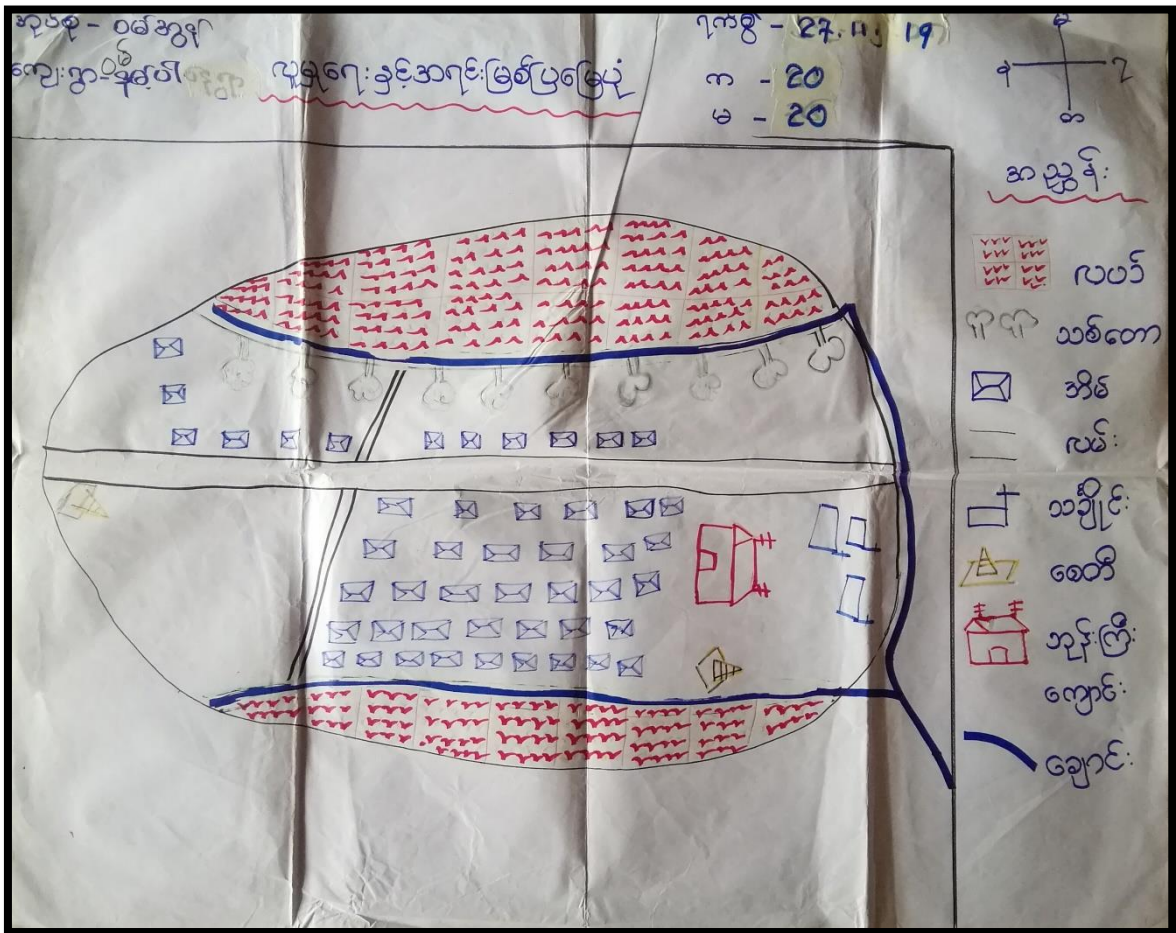 အုပ်စု -
ကျေးရွာ -
လူမှုရေးနှင့်အရင်းမြစ်ပြမြေပုံ
ရက်စွဲ - 27. 11. 19
က - 20
မ - 20
အညွှန်း
လယ်
သစ်တော
အိမ်
လမ်း
သင်္ချိုင်း
စေတီ
ဘုန်းကြီး
ကျောင်း
ချောင်း